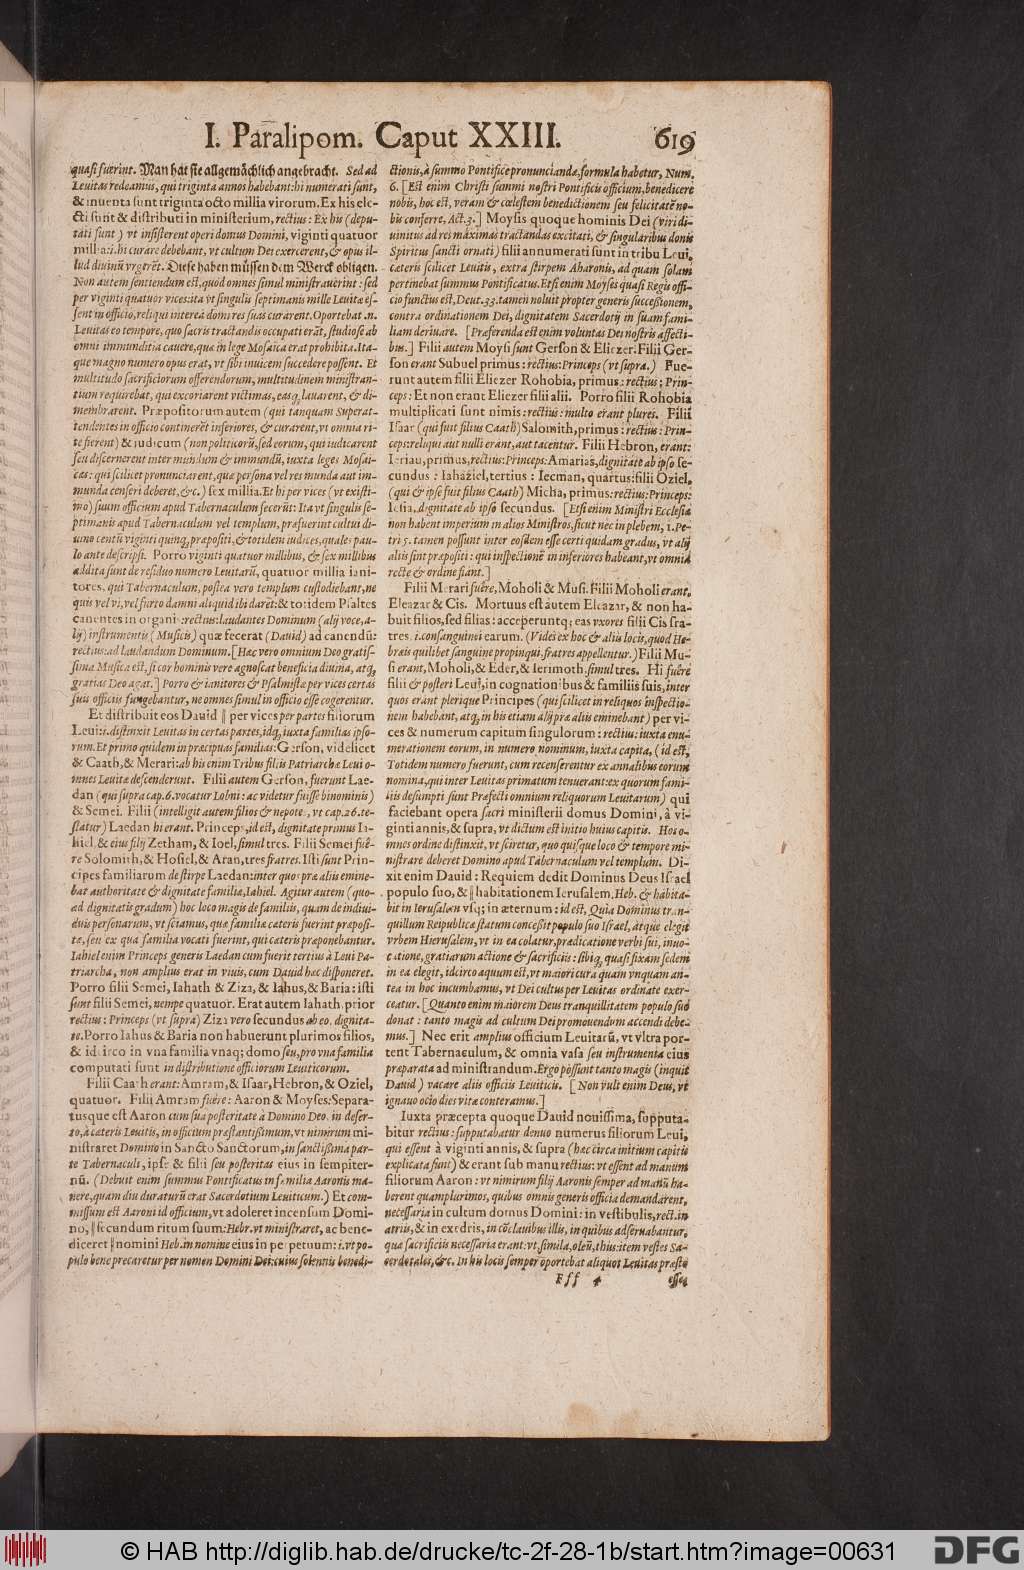 I. Paralipom. Caput XXIII. 619
quasi fuerint. Man hat sie allgemächlich angebracht. Sed ad
Levitas redeamus, qui triginta annos habebant: hi numerati sunt,
& inventa sunt triginta octo millia virorum. Ex his ele-
cti sunt & distributi in ministerium, rectius: Ex his (depu-
tati sunt) vt insisterent operi domus Domini, viginti quatuor
millia: i. hi curare debebant, vt cultum Dei exercerent, & opus il-
lud divinũ vrgerẽt. Diese haben müssen dem Werck obligen.
Non autem sentiendum est, quod omnes simul ministraverint: sed
per viginti quatuor vices: ita vt singulis septimanis mille Levitæ es-
sent in officio, reliqui interea domi res suas curarent. Oportebat .n.
Levitas eo tempore, quo sacris tractandis occupati erãt, studiose ab
omni immunditia cavere, qua in lege Mosaica erat prohibita. Ita-
que magno numero opus erat, vt sibi invicem succedere possent. Et
multitudo sacrificiorum offerendorum, multitudinem ministran-
tium requirebat, qui excoriarent victimas, easq; lavarent, & di-
membrarent. Præpositorum autem (qui tanquam Superat-
tendentes in officio continerẽt inferiores, & curarent, vt omnia ri-
te fierent) & iudicum (non politicorũ, sed eorum, qui iudicarent
seu discernerent inter mundum & immundũ, iuxta leges Mosai-
cas: qui scilicet pronunciarent, quæ persona vel res munda aut im-
munda censeri deberet, &c.) sex millia. Et hi per vices (vt existi-
mo) suum officium apud Tabernaculum fecerũt: Ita vt singulis se-
ptimanis apud Tabernaculum vel templum, præfuerint cultui di-
vino centũ viginti quinq; præpositi, & totidem iudices, quales pau-
lo ante descripsi. Porro viginti quatuor millibus, & sex millibus
addita sunt de residuo numero Levitarũ, quatuor millia iani-
tores, qui Tabernaculum, postea vero templum custodiebant, ne
quis vel vi, vel furto damni aliquid ibi darẽt: & totidem Psaltes
canentes in organi: rectius: laudantes Dominum (alij voce, a-
lij) instrumentis (Musicis) quæ fecerat (David) ad canendũ:
rectius: ad laudandum Dominum. [Hæc vero omnium Deo gratis-
sima Musica est, si cor hominis vere agnoscat beneficia divina, atq;
gratias Deo agat.] Porro & ianitores & Psalmistæ per vices certas
suis officiis fungebantur, ne omnes simul in officio esse cogerentur.
Et distribuit eos David ‖ per vices per partes filiorum
Levi: i. distinxit Levitas in certas partes, idq; iuxta familias ipso-
rum. Et primo quidem in præcipuas familias: Gerson, videlicet
& Caath, & Merari: ab his enim Tribus filiis Patriarchæ Levi o-
mnes Levitæ descenderunt. Filii autem Gerson, fuerunt Lae-
dan (qui supra cap. 6. vocatur Lobni: ac videtur fuisse binominis)
& Semei. Filii (intelligit autem filios & nepotes, vt cap. 26. te-
statur) Laedan hi erant. Princeps, id est, dignitate primus Ia-
hiel, & eius filij Zetham, & Ioel, simul tres. Filii Semei fuê-
re Solomith, & Hosiel, & Aran, tres fratres. Isti sunt Prin-
cipes familiarum de stirpe Laedan: inter quos præ aliis emine-
bat authoritate & dignitate familiæ, Iahiel. Agitur autem (quo-
ad dignitatis gradum) hoc loco magis de familiis, quam de indivi-
duis personarum, vt sciamus, quæ familiæ cæteris fuerint præposi-
tæ, seu ex qua familia vocati fuerint, qui cæteris præponebantur.
Iahiel enim Princeps generis Laedan cum fuerit tertius à Levi Pa-
triarcha, non amplius erat in vivis, cum David hæc disponeret.
Porro filii Semei, Iahath & Ziza, & Iahus, & Baria: isti
sunt filii Semei, nempe quatuor. Erat autem Iahath, prior
rectius: Princeps (vt supra) Ziza vero secundus ab eo, dignita-
te. Porro Iahus & Baria non habuerunt plurimos filios,
& idcirco in vna familia vnaq; domo seu, pro vna familia
computati sunt in distributione officiorum Leviticorum.
Filii Caath erant: Amram, & Isaar, Hebron, & Oziel,
quatuor. Filii Amram fuêre: Aaron & Moyses: Separa-
tusque est Aaron cum sua posteritate à Domino Deo, in deser-
to, à cæteris Levitis, in officium præstantissimum, vt nimirum mi-
nistraret Domino in Sancto Sanctorum, in sanctissima par-
te Tabernaculi, ipse & filii seu posteritas eius in sempiter-
nũ. (Debuit enim summus Pontificatus in familia Aaronis ma-
nere, quam diu duraturũ erat Sacerdotium Leviticum.) Et com-
missum est Aaroni id officium, vt adoleret incensum Domi-
no, ‖ secundum ritum suum: Hebr. vt ministraret, ac bene-
diceret ‖ nomini Heb. in nomine eius in perpetuum: i. vt po-
pulo bene precaretur per nomen Domini Dei: cuius solennis benedi-
ctionis, à summo Pontifice pronunciandæ, formula habetur, Num.
6. [Est enim Christi summi nostri Pontificis officium, benedicere
nobis, hoc est, veram & cœlestem benedictionem seu felicitatẽ no-
bis conferre, Act. 3.] Moysis quoque hominis Dei (viri di-
vinitus ad res maximas tractandas excitati, & singularibus donis
Spiritus sancti ornati) filii annumerati sunt in tribu Levi,
cæteris scilicet Levitis, extra stirpem Aharonis, ad quam solam
pertinebat summus Pontificatus. Etsi enim Moyses quasi Regis offi-
cio functus est, Deut. 33. tamen noluit propter generis successionem,
contra ordinationem Dei, dignitatem Sacerdotij in suam fami-
liam derivare. [Præferenda est enim voluntas Dei nostris affecti-
bus.] Filii autem Moysi sunt Gerson & Eliezer. Filii Ger-
son erant Subuel primus: rectius: Princeps (vt supra.) Fue-
runt autem filii Eliezer Rohobia, primus: rectius; Prin-
ceps: Et non erant Eliezer filii alii. Porro filii Rohobia
multiplicati sunt nimis: rectius: multo erant plures. Filii
Isaar (qui fuit filius Caath) Salomith, primus: rectius: Prin-
ceps: reliqui aut nulli erant, aut tacentur. Filii Hebron, erant:
Ieriau, primus, rectius: Princeps: Amarias, dignitate ab ipso se-
cundus: Iahaziel, tertius: Iecman, quartus: filii Oziel,
(qui & ipse fuit filius Caath) Micha, primus: rectius: Princeps:
Iesia, dignitate ab ipso secundus. [Etsi enim Ministri Ecclesiæ
non habent imperium in alios Ministros, sicut nec in plebem, 1. Pe-
tri 5. tamen possunt inter eosdem esse certi quidam gradus, vt alij
aliis sint præpositi: qui inspectionẽ in inferiores habeant, vt omnia
recte & ordine fiant.]
Filii Merari fuêre, Moholi & Musi. Filii Moholi erant,
Eleazar & Cis. Mortuus est autem Eleazar, & non ha-
buit filios, sed filias: acceperuntq; eas vxores filii Cis fra-
tres, i. consanguinei earum. (Vides ex hoc & aliis locis, quod He-
bræis quilibet sanguine propinqui, fratres appellentur.) Filii Mu-
si erant, Moholi, & Eder, & Ierimoth, simul tres. Hi fuêre
filii & posteri Levi, in cognationibus & familiis suis, inter
quos erant plerique Principes (qui scilicet in reliquos inspectio-
nem habebant, atq; in his etiam alij præ aliis eminebant) per vi-
ces & numerum capitum singulorum: rectius: iuxta enu-
merationem eorum, in numero nominum, iuxta capita, (id est,
Totidem numero fuerunt, cum recenserentur ex annalibus eorum
nomina, qui inter Levitas primatum tenuerant: ex quorum fami-
liis desumpti sunt Præfecti omnium reliquorum Levitarum) qui
faciebant opera sacri ministerii domus Domini, à vi-
ginti annis, & supra, vt dictum est initio huius capitis. Hos o-
mnes ordine distinxit, vt sciretur, quo quisque loco & tempore mi-
nistrare deberet Domino apud Tabernaculum vel templum. Di-
xit enim David: Requiem dedit Dominus Deus Israel
populo suo, & ‖ habitationem Ierusalem, Heb. & habita-
bit in Ierusalem vsq; in æternum: id est, Quia Dominus tran-
quillum Reipublicæ statum concessit populo suo Israel, atque elegit
vrbem Hierusalem, vt in ea colatur, prædicatione verbi sui, invo-
catione, gratiarum actione & sacrificiis: sibiq; quasi fixam sedem
in ea elegit, idcirco æquum est, vt maiori cura quam vnquam an-
tea in hoc incumbamus, vt Dei cultus per Levitas ordinate exer-
ceatur. [Quanto enim maiorem Deus tranquillitatem populo suo
donat: tanto magis ad cultum Dei promovendum accendi debe-
mus.] Nec erit amplius officium Levitarũ, vt vltra por-
tent Tabernaculum, & omnia vasa seu instrumenta eius
præparata ad ministrandum. Ergo possunt tanto magis (inquit
David) vacare aliis officiis Leviticis. [Non vult enim Deus, vt
ignavo ocio dies vitæ conteramus.]
Iuxta præcepta quoque David novissima, supputa-
bitur rectius: supputabatur denuo numerus filiorum Levi,
qui essent à viginti annis, & supra (hæc circa initium capitis
explicata sunt) & erant sub manu rectius: vt essent ad manum
filiorum Aaron: vt nimirum filij Aaronis semper ad manũ ha-
berent quamplurimos, quibus omnis generis officia demandarent,
necessaria in cultum domus Domini: in vestibulis, rect. in
atriis, & in exedris, in cõclavibus illis, in quibus adservabantur,
quæ sacrificiis necessaria erant: vt, simila, oleũ, thus: item vestes Sa-
cerdotales, &c. In his locis semper oportebat aliquot Levitas præsto
Fff 4 esse,
© HAB http://diglib.hab.de/drucke/tc-2f-28-1b/start.htm?image=00631
DFG